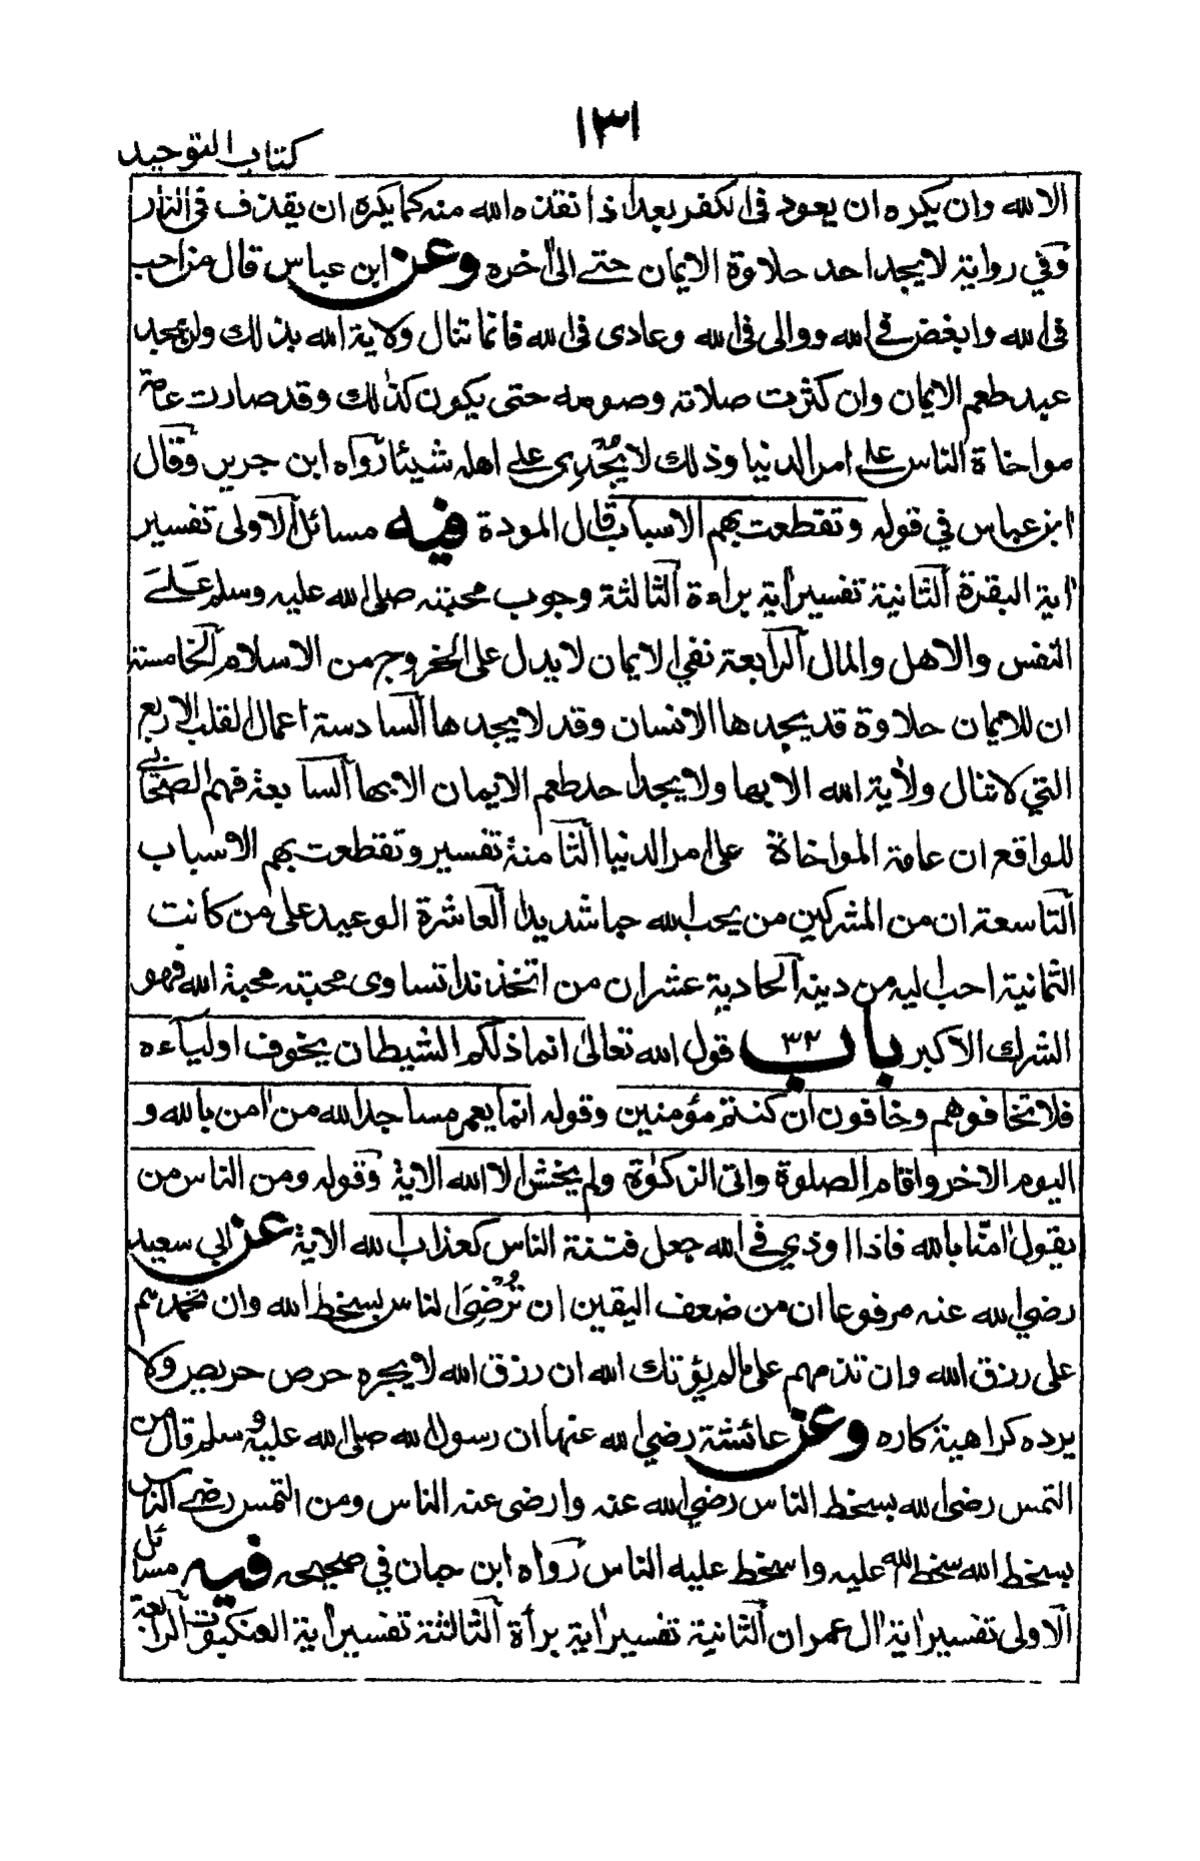 ١٣١
كتاب التوحيد
الا لله وان يكره ان يعود في الكفر بعد اذ انقذه الله منه كما يكره ان يقذف في النار
وفي رواية لا يجد احد حلاوة الايمان حتے الى اٰخره وعن ابن عباس قال من احب
في الله وابغض في الله ووالى في الله وعادى في الله فانما تنال ولاية الله بذلك ولن يجد
عبد طعم الايمان وان كثرت صلاته وصومه حتى يكون كذٰلك وقد صارت عامة
مواخاة الناس علے امر الدنيا وذلك لا يُجْدِى علے اهله شيئا رواه ابن جرير وقال
ابن عباس في قوله وتقطعت بهم الاسباب قال المودة فيه مسائل الاولى تفسير
اٰية البقرة الثانية تفسير اٰية براءة الثالثة وجوب محبته صلى الله عليه وسلم عَلےَ
النفس والاهل والمال الرابعة نفي الايمان لا يدل على الخروج من الاسلام الخامسة
ان للايمان حلاوة قد يجدها الانسان وقد لا يجدها السادسة اعمال القلب الاربع
التي لا تنال ولاية الله الا بها ولا يجد احد طعم الايمان الا بها السابعة فهم الصحابي
للواقع ان عامة المواخاة على امر الدنيا الثامنة تفسير وتقطعت بهم الاسباب
التاسعة ان من المشركين من يحب الله حبا شديدا العاشرة الوعيد على من كانت
الثمانية احب اليه من دينه الحادية عشر ان من اتخذ ندا تساوى محبته محبة الله فهو
الشرك الاكبر باب ٣٢ قول الله تعالىٰ انما ذلكم الشيطان يخوف اولياءه
فلا تخافوهم وخافون ان كنتم مؤمنين وقوله انما يعمر مساجد الله من اٰمن بالله و
اليوم الاخر واقام الصلوة واتى الزكوٰة ولم يخش الا الله الاية وقوله ومن الناس من
يقول اٰمنّا بالله فاذا اوذي في الله جعل فتنة الناس كعذاب الله الاية عن ابي سعيد
رضي الله عنه مرفوعا ان من ضعف اليقين ان تُرْضِيَ الناس بسخط الله وان تحمدهم
على رزق الله وان تذمهم على ما لم يؤتك الله ان رزق الله لا يجره حرص حريص ولا
يرده كراهية كاره وعن عائشة رضي الله عنها ان رسول الله صلى الله عليه وسلم قال من
التمس رضى الله بسخط الناس رضي الله عنه وارضى عنه الناس ومن التمس رضے الناس
بسخط الله سخط الله عليه واسخط عليه الناس رواه ابن حبان في صحيحه فيه مسائل
الاولى تفسير اٰية اٰل عمران الثانية تفسير اٰية برأة الثالثة تفسير اٰية العنكبوت الرابعة